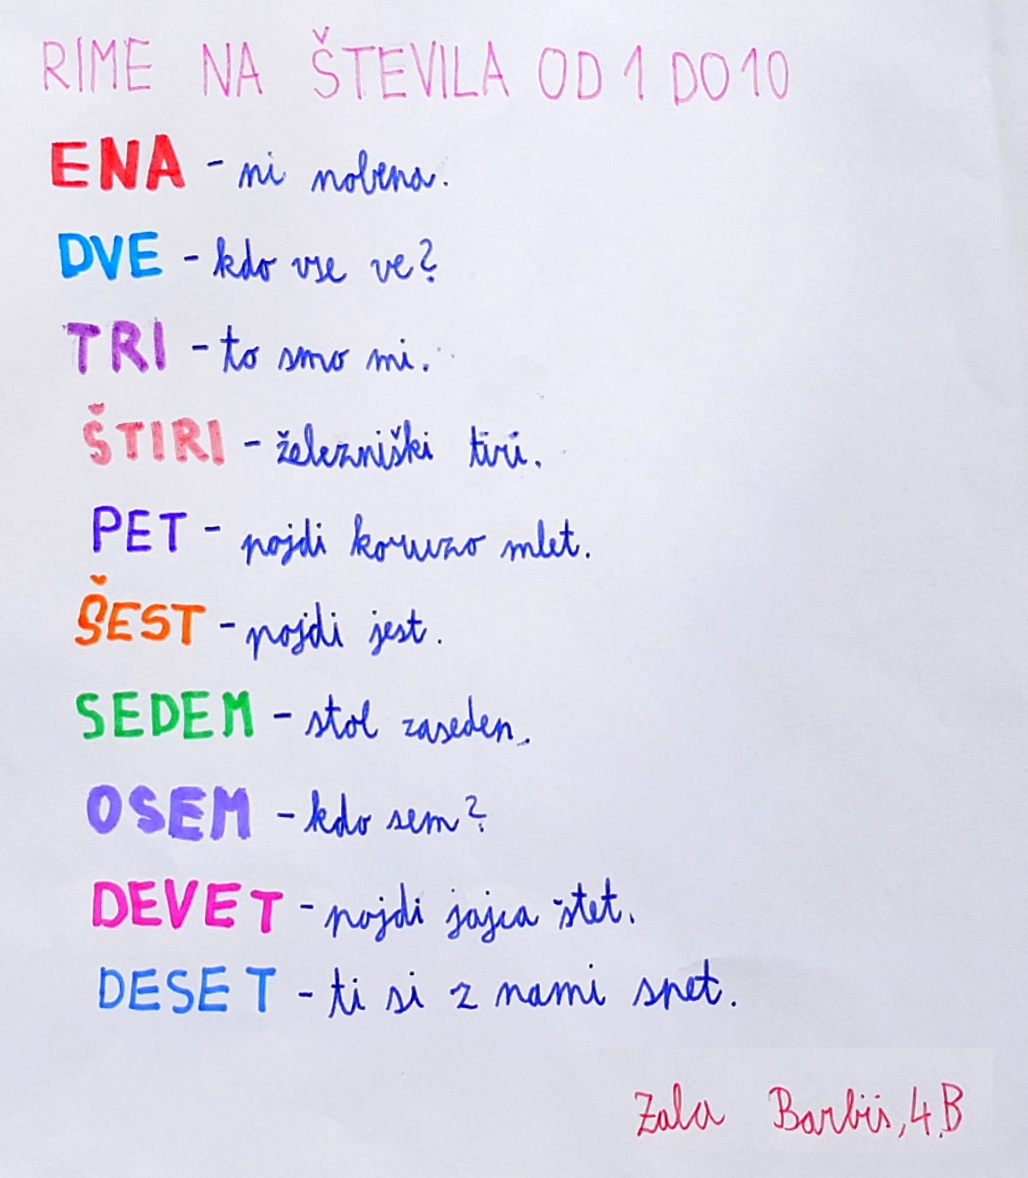 RIME NA ŠTEVILA OD 1 DO 10
ENA - ni nobena.
DVE - kdo vse ve?
TRI - to smo mi.
ŠTIRI - železniški tiri.
PET - pojdi koruzo mlet.
ŠEST - pojdi jest.
SEDEM - stol zaseden.
OSEM - kdo sem?
DEVET - pojdi jajca štet.
DESET - ti si z nami spet.
Zala 4.B